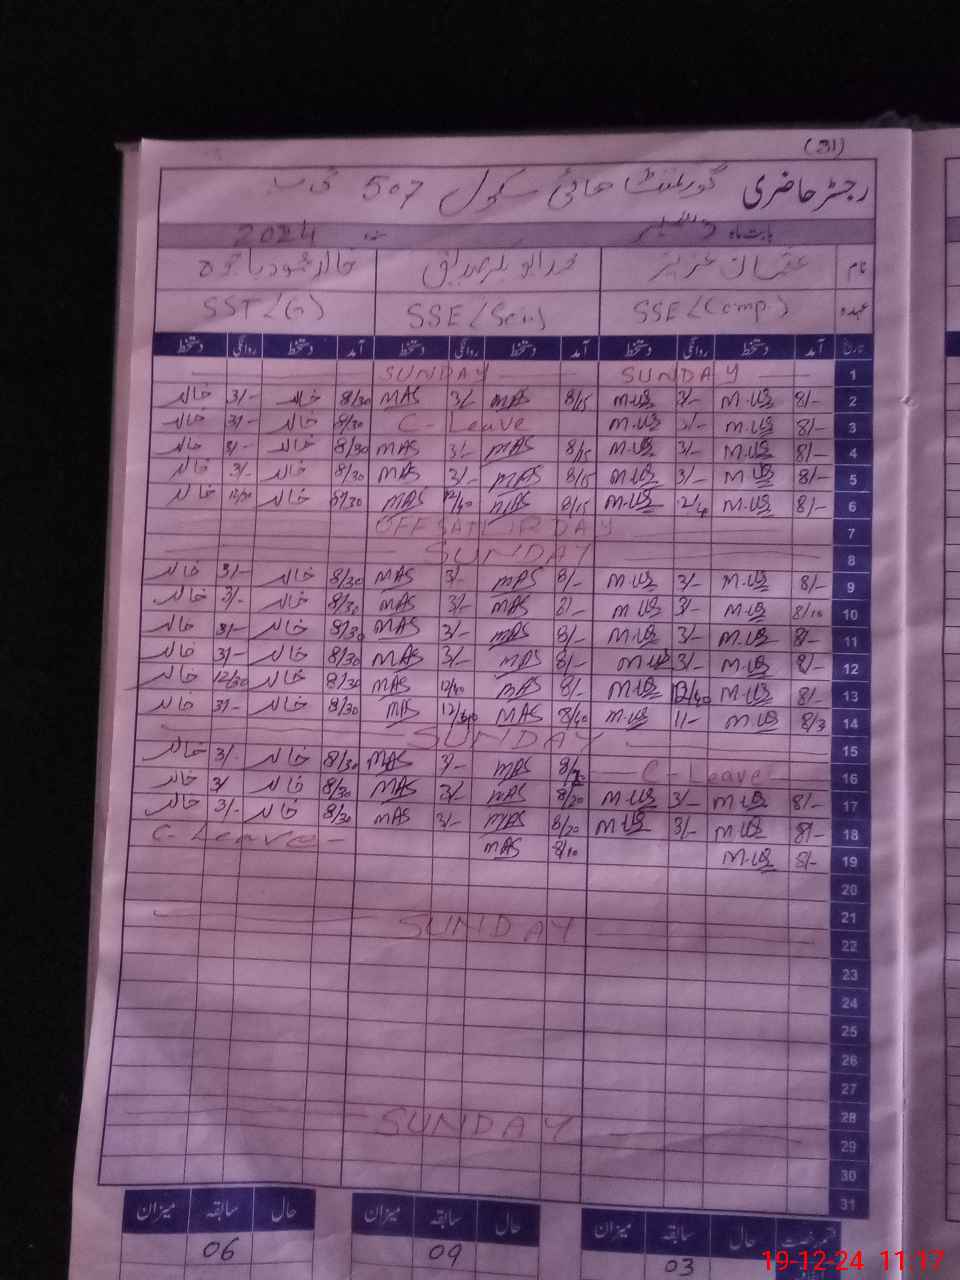 (31)
رجسٹر حاضری گورنمنٹ ہائی سکول 507 گ ب
بابت ماہ دسمبر سنہ 2024
نام عثمان عزیز محمد ابوبکر صدیق خالد محمود
عہدہ SSE/(Comp.) SSE/(Sci) SST/(G)
تاریخ آمد دستخط روانگی دستخط آمد دستخط روانگی دستخط آمد دستخط روانگی دستخط
1 SUNDAY SUNDAY
2 8/- M.US 3/- M.US 8/15 MAS 3/- MAS 8/30 خالد 3/- خالد
3 8/- M.US 3/- M.US C-Leave 8/30 خالد 3/- خالد
4 8/- M.US 3/- M.US 8/15 MAS 3/- MAS 8/30 خالد 3/- خالد
5 8/- M.US 3/- M.US 8/15 MAS 3/- MAS 8/30 خالد 3/- خالد
6 8/- M.US M.US 8/15 MAS 12/40 MAS 8/30 خالد 12/30 خالد
7 OFF SATURDAY
8 SUNDAY
9 8/- M.US 3/- M.US 8/- MAS 3/- MAS 8/30 خالد 3/- خالد
10 8/10 M.US 3/- M.US 8/- MAS 3/- MAS 8/30 خالد 3/- خالد
11 8/- M.US 3/- M.US 8/- MAS 3/- MAS 8/30 خالد 3/- خالد
12 8/- M.US 3/- M.US 8/- MAS 3/- MAS 8/30 خالد 3/- خالد
13 8/- M.US 12/40 M.US 8/- MAS 12/40 MAS 8/30 خالد 12/30 خالد
14 M.US 11/- M.US 8/40 MAS MAS 8/30 خالد 3/- خالد
15 SUNDAY
16 C-Leave MAS 3/- MAS 8/30 خالد 3/- خالد
17 8/- M.US 3/- M.US 8/20 MAS 3/- MAS 8/30 خالد 3/ خالد
18 8/- M.US 3/- M.US 8/20 MAS 3/- MAS 8/30 خالد 3/- خالد
19 8/- M.US 8/10 MAS C-Leave
20
21
SUNDAY
22
23
24
25
26
27
28
SUNDAY
29
30
31
قسم رخصت حال سابقہ میزان حال سابقہ میزان حال سابقہ میزان
03 09 06
19-12-24 11:17